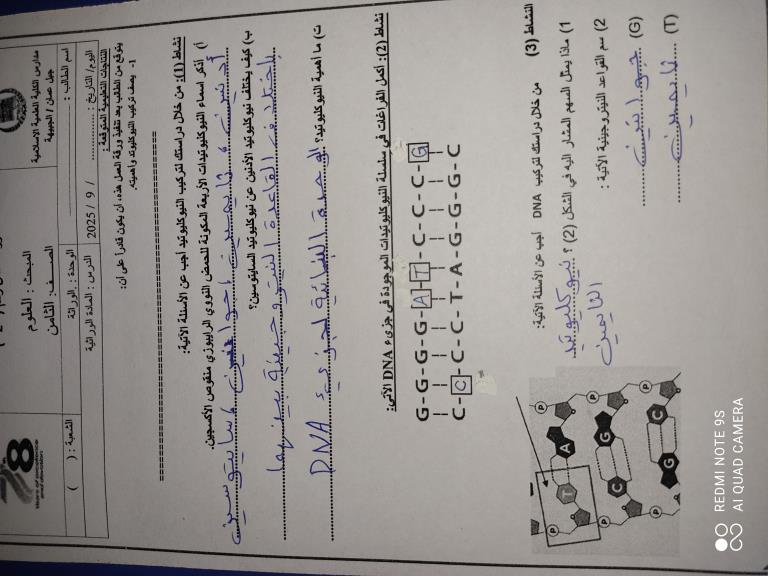 مدارس الكلية العلمية الاسلامية
جبل عمان / الجبيهة
اسم الطالب :
المبحث : العلوم
الصف : الثامن
الشعبة : ( )
الوحدة : الوراثة
الدرس : المادة الوراثية
اليوم/ التاريخ : / 9 / 2025
النتاجات التعليمية المتوقعة :
يتوقع من الطالب بعد تنفيذ ورقة العمل هذه، ان يكون قادراً على ان:
1- يصف تركيب النيوكليوتيد وأهميته.
نشاط (1): من خلال دراستك لتركيب النيوكليوتيد أجب عن الأسئلة الآتية:
أ) أذكر اسماء النيوكليوتيدات الأربعة المكونة للحمض النووي الرايبوزي منقوص الأكسجين.
أدنين ، ثايمين ، جوانين ، سايتوسين
ب) كيف يختلف نيوكليوتيد الأدنين عن نيوكليوتيد السايتوسين؟
باختلاف القاعدة النيتروجينية بينهما
ت) ما أهمية النيوكليوتيد؟ الوحدة البنائية لجزيء DNA
نشاط (2): اكمل الفراغات في سلسلة النيوكليوتيدات الموجودة في جزيء DNA الآتي:
G-G-G-G-A-T-C-C-C-G
C-C-C-C-T-A-G-G-G-C
النشاط (3) من خلال دراستك لتركيب DNA أجب عن الأسئلة الآتية:
1) ماذا يمثل السهم المشار اليه في الشكل (2) ؟ نيوكليوتيد
الثايمين
2) سم القواعد النيتروجينية الآتية :
(G) جوانين
(T) ثايمين
P
T
A
P
P
C
G
P
P
G
C
REDMI NOTE 9S
AI QUAD CAMERA